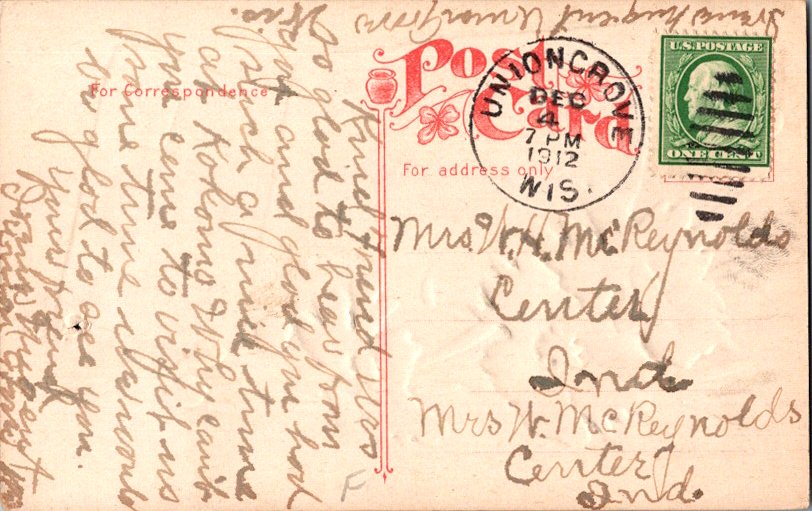 Union Grove
Wis.
Post Card
For Correspondence
For address only
UNION GROVE
DEC
4
7 PM
1912
WIS.
U.S. POSTAGE
ONE CENT
Mrs. W. H. McReynolds
Center
Ind
Mrs W. McReynolds
Center
Ind.
Kind friend Mrs
So glad to hear from
you and glad you had
such a nice time
at Kokomo Why can't
you come to visit us
some time we would
be glad to see you.
yours friend
Nugent
F